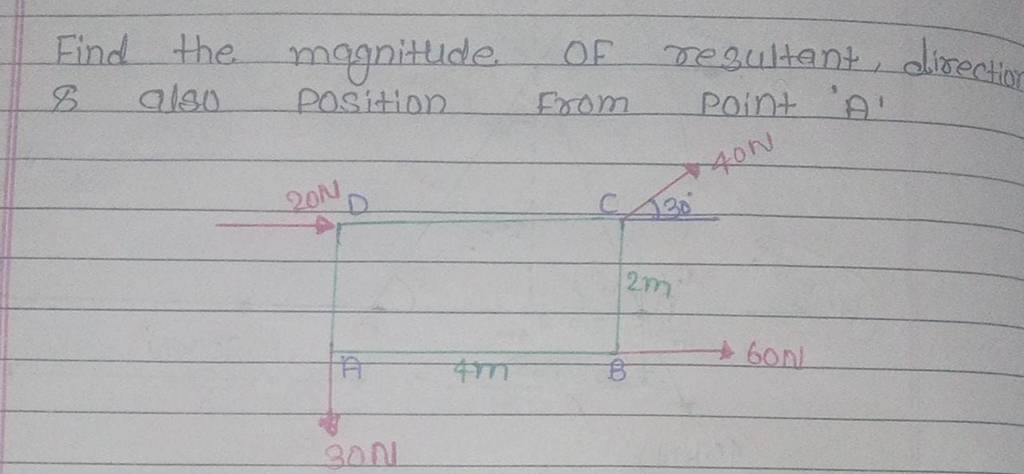 Find the magnitude OF resultant, direction
& also Position From Point 'A'
40N
20N D C 30°
2m
A 4m B 60N
30N